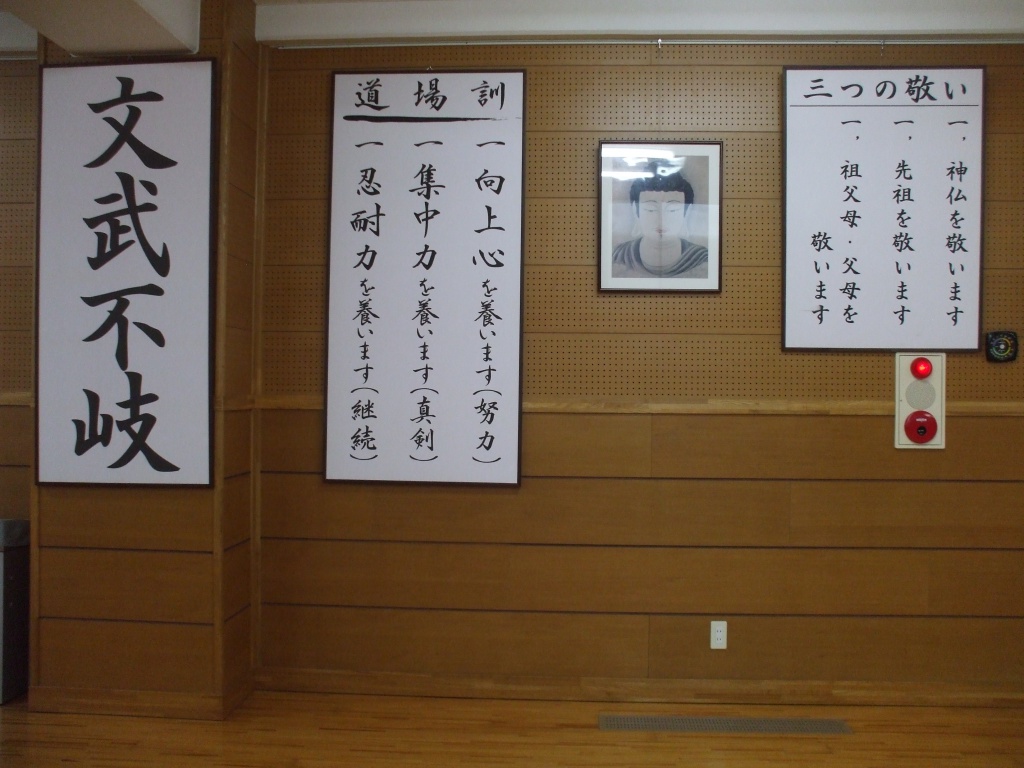 文武不岐
道場訓
一 向上心を養います(努力)
一 集中力を養います(真剣)
一 忍耐力を養います(継続)
三つの敬い
一，神仏を敬います
一，先祖を敬います
一，祖父母・父母を
敬います